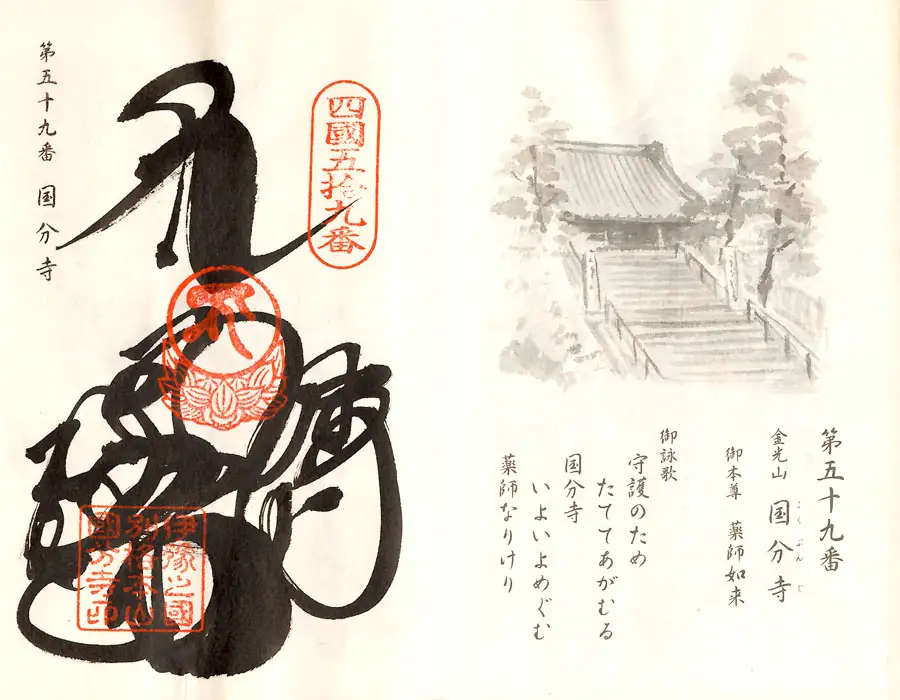 第五十九番
金光山 国分寺
こくぶんじ
御本尊 薬師如来
御詠歌
守護のため
たててあがむる
国分寺
いよいよめぐむ
薬師なりけり
四國五拾九番
伊豫之國
別格本山
國分寺印
第五十九番 国分寺